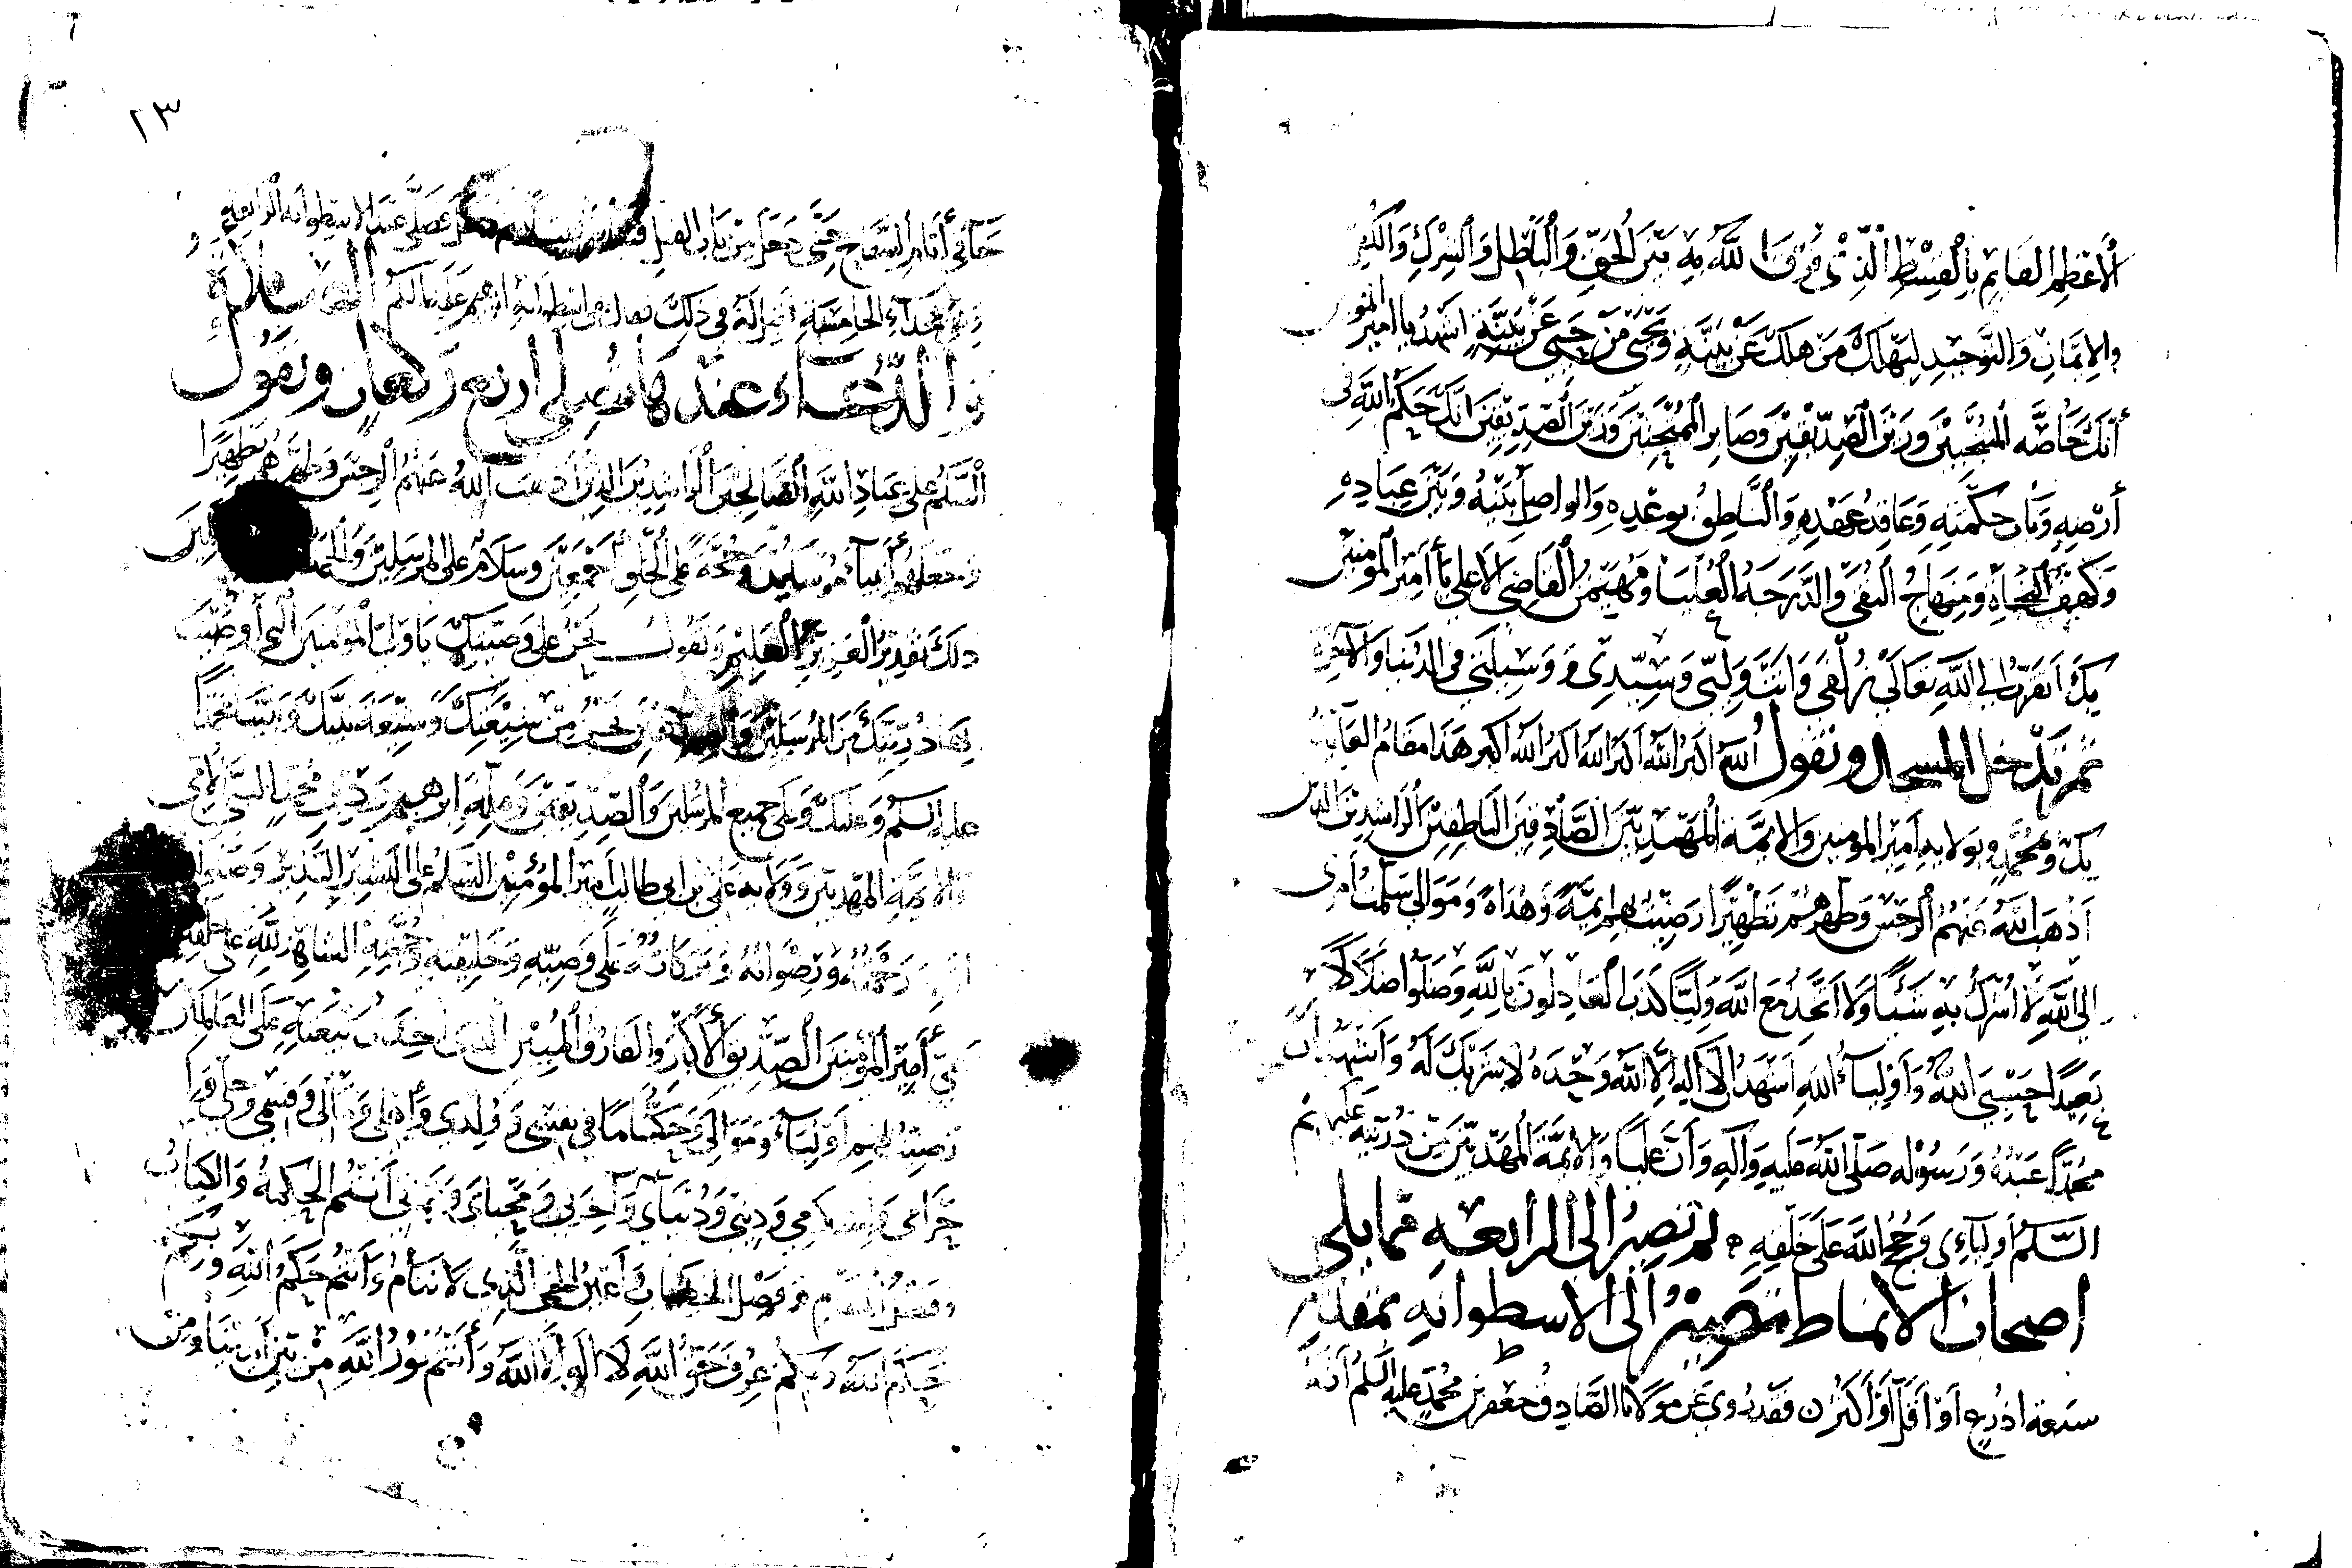 الأعظم القايم بالقسط الذي فرق الله به بين الحق والباطل والشرك والكفر
والإيمان والتوحيد ليهلك من هلك عن بينة ويحيى من حيى عن بينة اشهد يا امير المومنين
أنك خاصه المنتجبين وزين الصديقين وصابر الممتحنين وزين الصديقين انك حكم الله في
أرضه وباب حكمته وعاقد عهده والناطق بوعده والواصل بينه وبين عباده
وكهف النجاه ومنهاج التقى والدرجه العليا ومهيمن القاضي الاعلى يا أمير المومنين
بك اتقرب إلى الله تعالى زلفى وانت وليي وسيدي ووسيلتي في الدنيا والآخرة
ثم تدخل المسجد وتقول الله اكبر الله اكبر الله اكبر الله اكبر هذا مقام العايذ
بك وبمحمد وبولايه أمير المومنين والايمة المهديين الصادقين الناطقين الراشدين الذين
اذهب الله عنهم الرجس وطهرهم تطهيرا رضيت بهم ايمة وهداة وموالي سلمت امري
الى الله لا اشرك به شيئا ولا اتخذ مع الله وليا كذب العادلون بالله وضلوا ضلالا
بعيدا حسبي الله وأولياء الله اشهد ان لا اله الا الله وحده لا شريك له واشهد ان
محمدا عبده ورسوله صلى الله عليه وآله وأن عليا والايمة المهديين من ذريته عليهم
السلم أوليائي وحجج الله على خلقه ثم تصير الى الرابعه مما يلي
اصحاب الانماط تصير الى الاسطوانه بمقدار
سبعة اذرع أو اقل أو أكثر فقد روي عن مولانا الصادق جعفر بن محمد عليه السلم أنه
٢٣
جآ في أيام السفاح حتى دخل من باب الفيل فصلى عند الاسطوانه الرابعه
الخامسة في ذلك
الصلاة
والدعاء عندها تصلي اربع ركعات وتقول
السلم على عباد الله الصالحين الراشدين الذين أذهب الله عنهم الرجس وطهرهم تطهيرا
وجعلهم أنبياء مرسلين وحجة على الخلق أجمعين وسلام على المرسلين والحمد
ذلك تقدير العزيز العليم وتقول نحن على وصيتك يا ولي المومنين التي أوصيت
بها ذريتك من المرسلين نحن من شيعتك وشيعة نبيك ونبينا محمد
عليه السلم وعليك وعلى جميع المرسلين والصديقين وملة ابرهيم ودين محمد النبي الأمي
والايمة المهديين وولايه على بن ابي طالب امير المؤمنين السلم على البشير النذير وصلوات
رحمته ورضوانه وبركاته على وصيه وخليفته وحجته الشاهد لله على خلقه
أمير المؤمنين الصديق الأكبر والفاروق المبين الذي أخذت بيعته على العالمين
رضيت بهم أولياء وموالي وحكاما في نفسي وولدي وأهلي ومالي وقسمي وحلي
وديني ودنياي وآخرتي ومحياي ومماتي أنتم الحكمة والكتاب
وفصل الخطاب وأعين الحي الذي لا ينام وأنتم حكم الله وبكم
حكم الله وبكم عرف حق الله لا اله الا الله وأنتم نور الله من بين أيدينا ومن